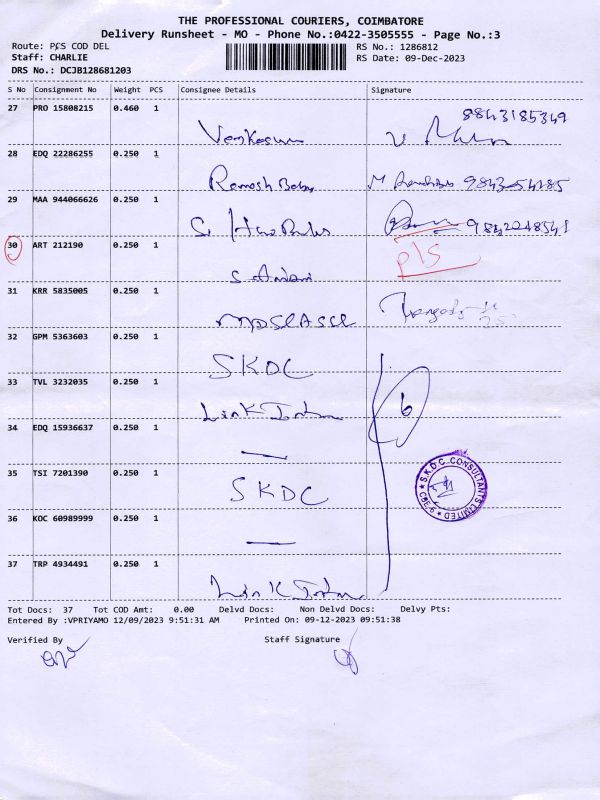 THE PROFESSIONAL COURIERS, COIMBATORE
Delivery Runsheet - MO - Phone No.:0422-3505555 - Page No.:3
Route: PCS COD DEL
Staff: CHARLIE
DRS No.: DCJB128681203
RS No.: 1286812
RS Date: 09-Dec-2023
S No Consignment No Weight PCS Consignee Details Signature
27 PRO 15808215 0.460 1 8843185349
28 EDQ 22286255 0.250 1 Ramesh Babu
29 MAA 944066626 0.250 1 9842248541
30 ART 212190 0.250 1 P/S
31 KRR 5835005 0.250 1
32 GPM 5363603 0.250 1 SKDC
33 TVL 3232035 0.250 1 Link Intime 6
34 EDQ 15936637 0.250 1 —
35 TSI 7201390 0.250 1 SKDC
S.K.D.C. CONSULTANTS LIMITED
CBE-6
36 KOC 60989999 0.250 1 —
37 TRP 4934491 0.250 1 Link Intime
Tot Docs: 37 Tot COD Amt: 0.00 Delvd Docs: Non Delvd Docs: Delvy Pts:
Entered By :VPRIYAMO 12/09/2023 9:51:31 AM Printed On: 09-12-2023 09:51:38
Verified By Staff Signature